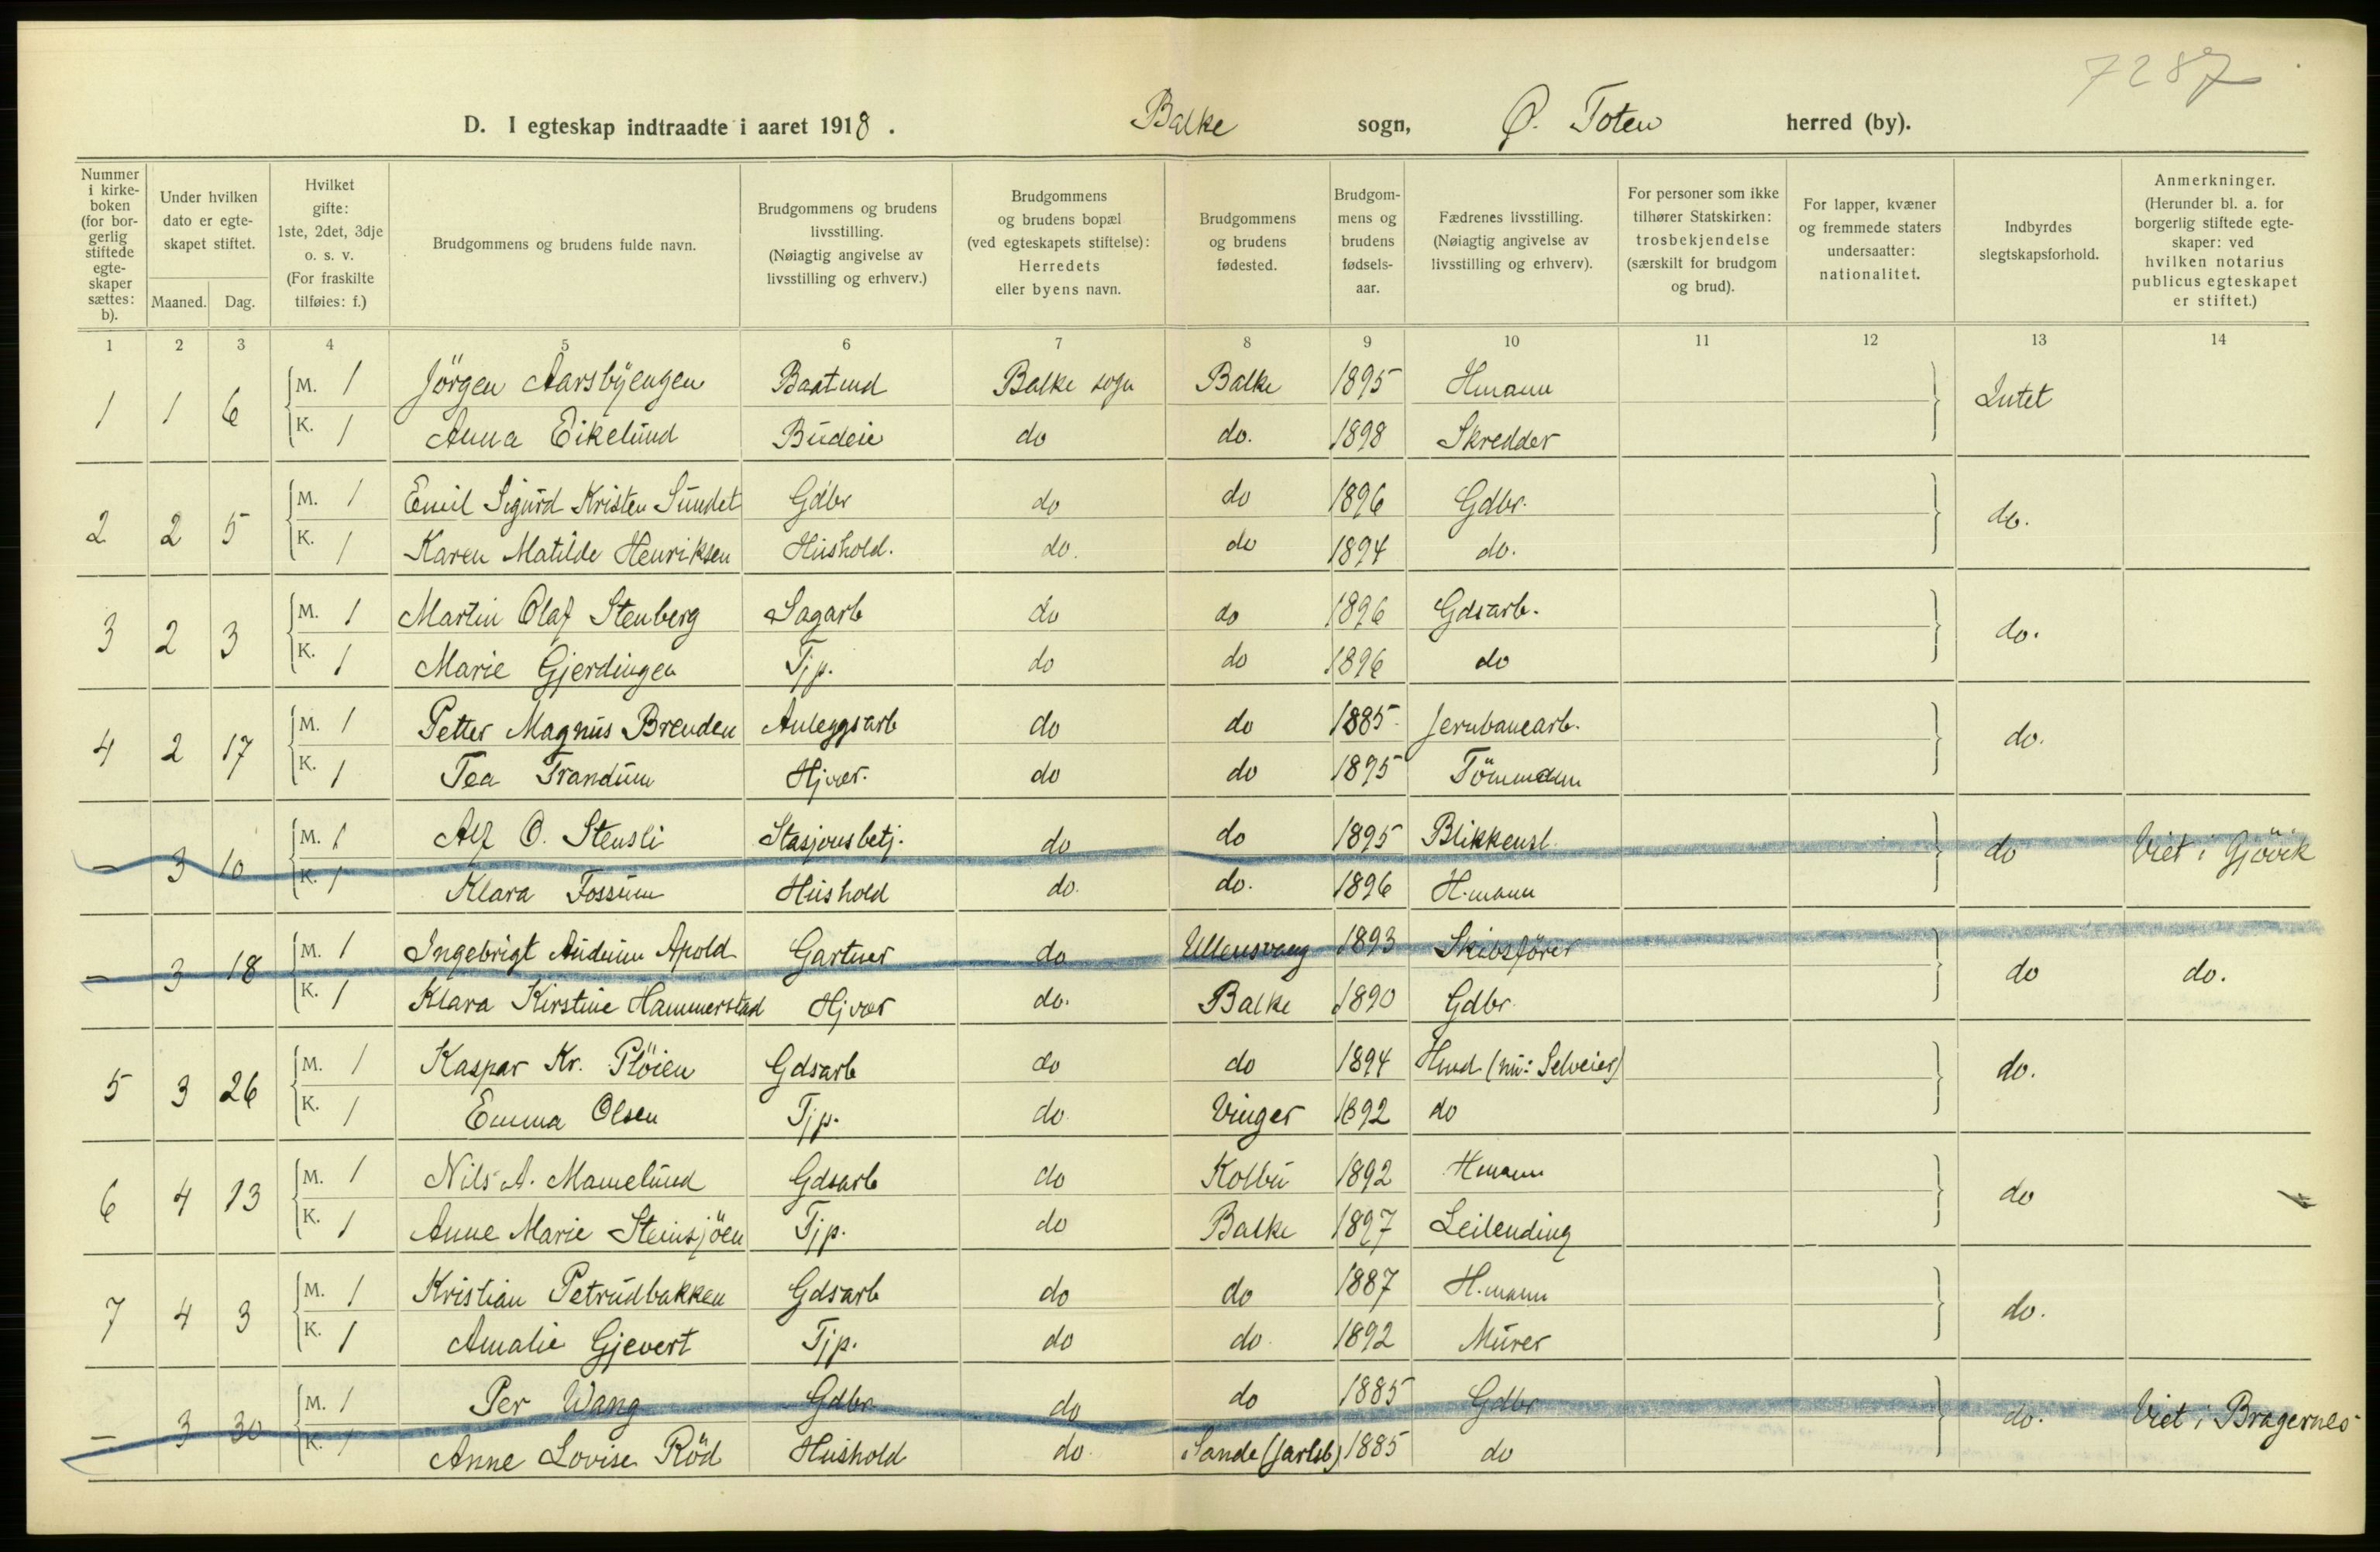 7287
D. I egteskap indtraadte i aaret 1918. Balke sogn, Ø. Toten herred (by).
Nummer i kirke-boken (for bor-gerlig stiftede egte-skaper sættes: b).
Under hvilken dato er egte-skapet stiftet.
Maaned. Dag.
Hvilket gifte: 1ste, 2det, 3dje o. s. v. (For fraskilte tilføies: f.)
Brudgommens og brudens fulde navn.
Brudgommens og brudens livsstilling. (Nøiagtig angivelse av livsstilling og erhverv.)
Brudgommens og brudens bopæl (ved egteskapets stiftelse): Herredets eller byens navn.
Brudgommens og brudens fødested.
Brudgom-mens og brudens fødsels-aar.
Fædrenes livsstilling. (Nøiagtig angivelse av livsstilling og erhverv).
For personer som ikke tilhører Statskirken: trosbekjendelse (særskilt for brudgom og brud).
For lapper, kvæner og fremmede staters undersaatter: nationalitet.
Indbyrdes slegtskapsforhold.
Anmerkninger. (Herunder bl. a. for borgerlig stiftede egte-skaper: ved hvilken notarius publicus egteskapet er stiftet.)
1 2 3 4 5 6 7 8 9 10 11 12 13 14
1 1 6 M. 1 Jörgen Aarsbÿengen Baatmd Balke sogn Balke 1895 Hmann Intet
K. 1 Anna Eikelund Budeie do do. 1898 Skredder
2 2 5 M. 1 Emil Sigurd Kristen Sundet Gdbr do do 1896 Gdbr. do.
K. 1 Karen Matilde Henriksen Hushold. do. do 1894 do.
3 2 3 M. 1 Martin Olaf Stenberg Sagarb do do 1896 Gdsarb. do.
K. 1 Marie Gjerdingen Tjp. do do 1896 do
4 2 17 M. 1 Petter Magnus Brenden Anleggsarb do do 1885 Jernbanearb. do.
K. 1 Tea Trandum Hjvær. do do 1895 Tömmdm
– 3 10 M. 1 Alf O. Stensli Stasjonsbetj. do do 1895 Blikkensl. do Viet i Gjövik
K. 1 Klara Fossum Hushold do. do. 1896 H.mann
– 3 18 M. 1 Ingebrigt Audum Apold Gartner do Ullensvang 1893 Skibsförer do do.
K. 1 Klara Kirstine Hammerstad Hjvær do. Balke 1890 Gdbr.
5 3 26 M. 1 Kaspar Kr. Plöien Gdsarb do do 1894 Hmd (nu: Selveier) do.
K. 1 Emma Olsen Tjp. do Vinger 1892 do
6 4 13 M. 1 Nils A. Mamelund Gdsarb do Kolbu 1892 Hmann do
K. 1 Anne Marie Steinsjöen Tjp. do Balke 1897 Leilending
7 4 3 M. 1 Kristian Petrudbakken Gdsarb do do 1887 H.mann do.
K. 1 Amalie Gjevert Tjp. do do. 1892 Murer
– 3 30 M. 1 Per Wang Gdbr do do 1885 Gdbr do. Viet i Bragernes
K. 1 Anne Lovise Röd Hushold do. Sande (Jarlsb) 1885 do